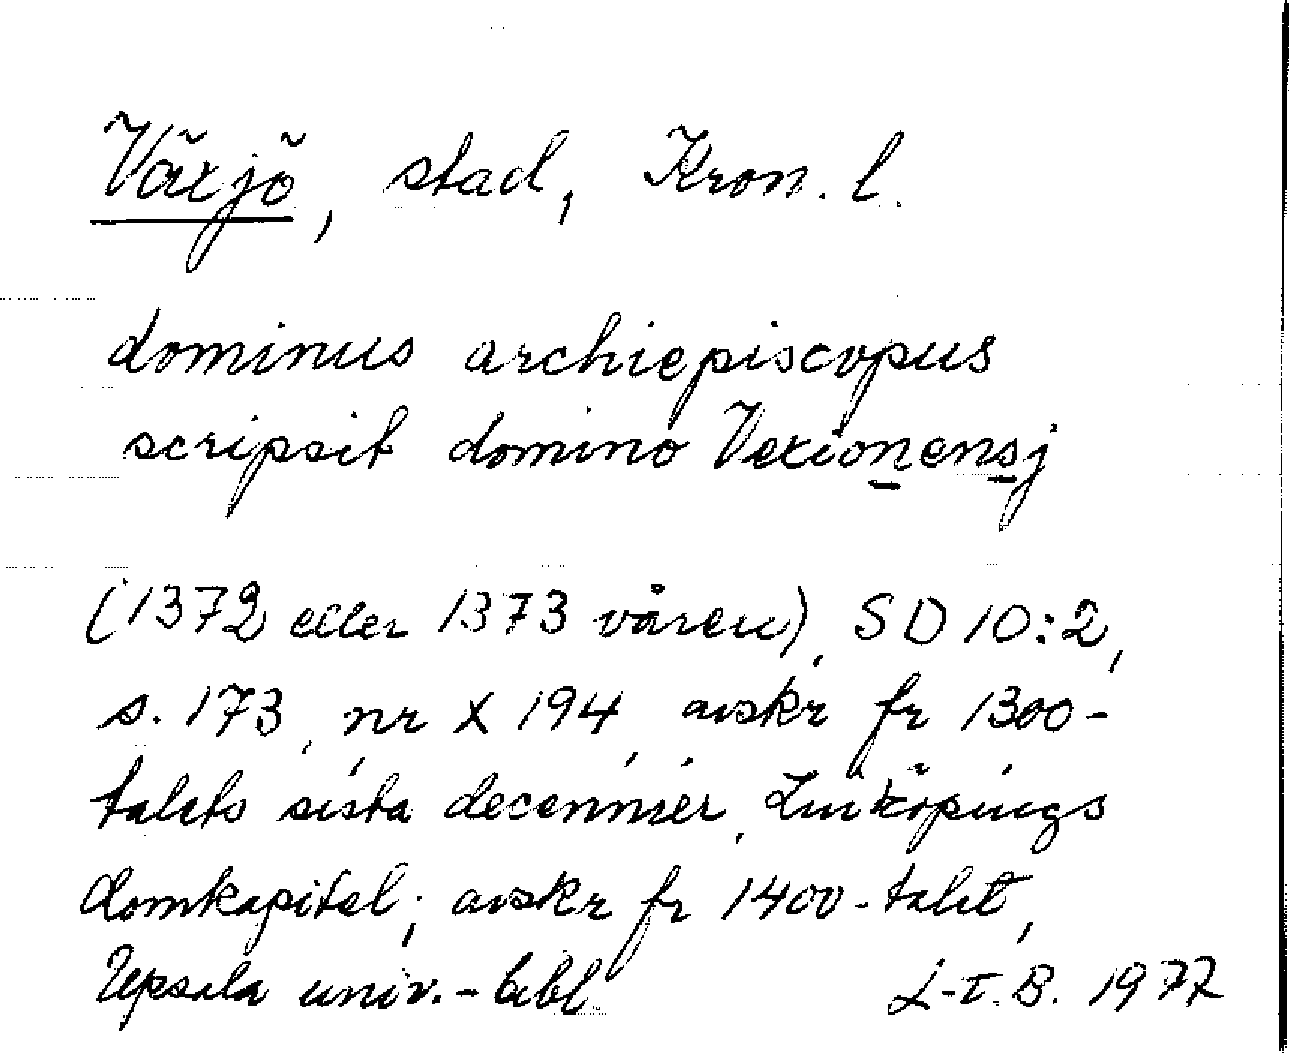 Växjö, stad, Kron. l.
dominus archiepiscopus
scripsit domino Vexionensj
(1372 eller 1373 våren), SD 10:2,
s. 173, nr X 194, avskr fr 1300-
talets sista decennier, Linköpings
domkapitel; avskr fr 1400-talet,
Upsala univ.-bibl.
L-E.B. 1977